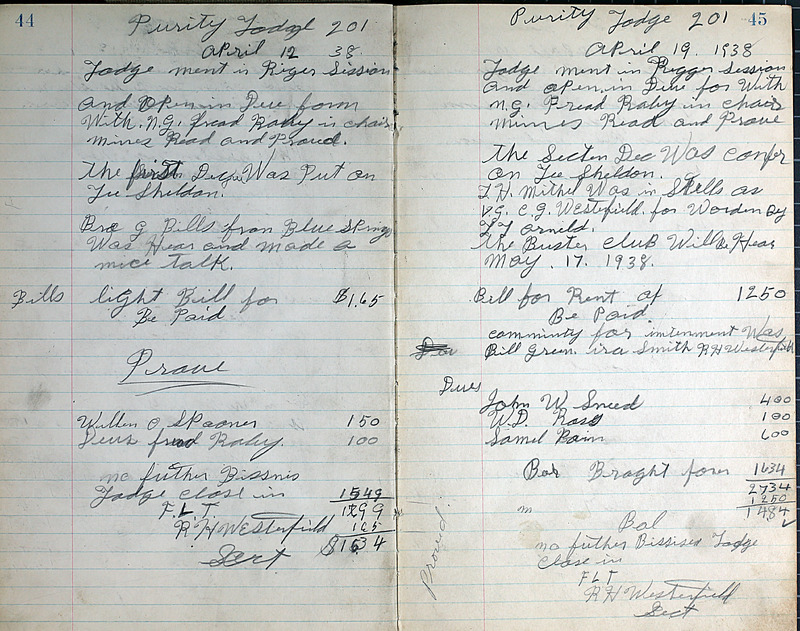 44
Purity Lodge 201
April 12 38.
Lodge ment in Riger Session
and open in Due form
With. N.G. fread Raby in chair
mines Read and Proud.
The first Degre Was Put on
Lee Sheldon.
Bro g Bills from Blue Springs
Was Hear and made a
nice Talk.
Bills light Bill for $1.65
Be Paid.
Prove
Willen O Spooner 150
Deus fred Raby. 100
no futher Bissnis
Lodge close in 1549
F. L T. 1799
R H Westerfield 165
Sect $1634
45
Purity Lodge 201
April 19, 1938
Lodge ment in Rigger Session
and open in Due for With
n.g. Fread Raby in chair
mines Read and Prove
The Secten Dec Was confer
on Lee Sheldon.
T. H. Mithel Was in Stells as
v.g. C. G. Westefield. for Worden By
Arneld.
The Buster Club Will Be Hear
May. 17. 1938.
Bill for Rent of 1250
Be Paid.
community for intenment Was
Bill Green. ira Smith R H Westerfield
Dues
John W Sneed 400
W. D. Ross 100
Samel Pain 600
Bal Braght forer 1634
2734
1250
1484
Bal
no futher Bissises Lodge
Close in
F L T
R H Westerfield
Sect
Proud.